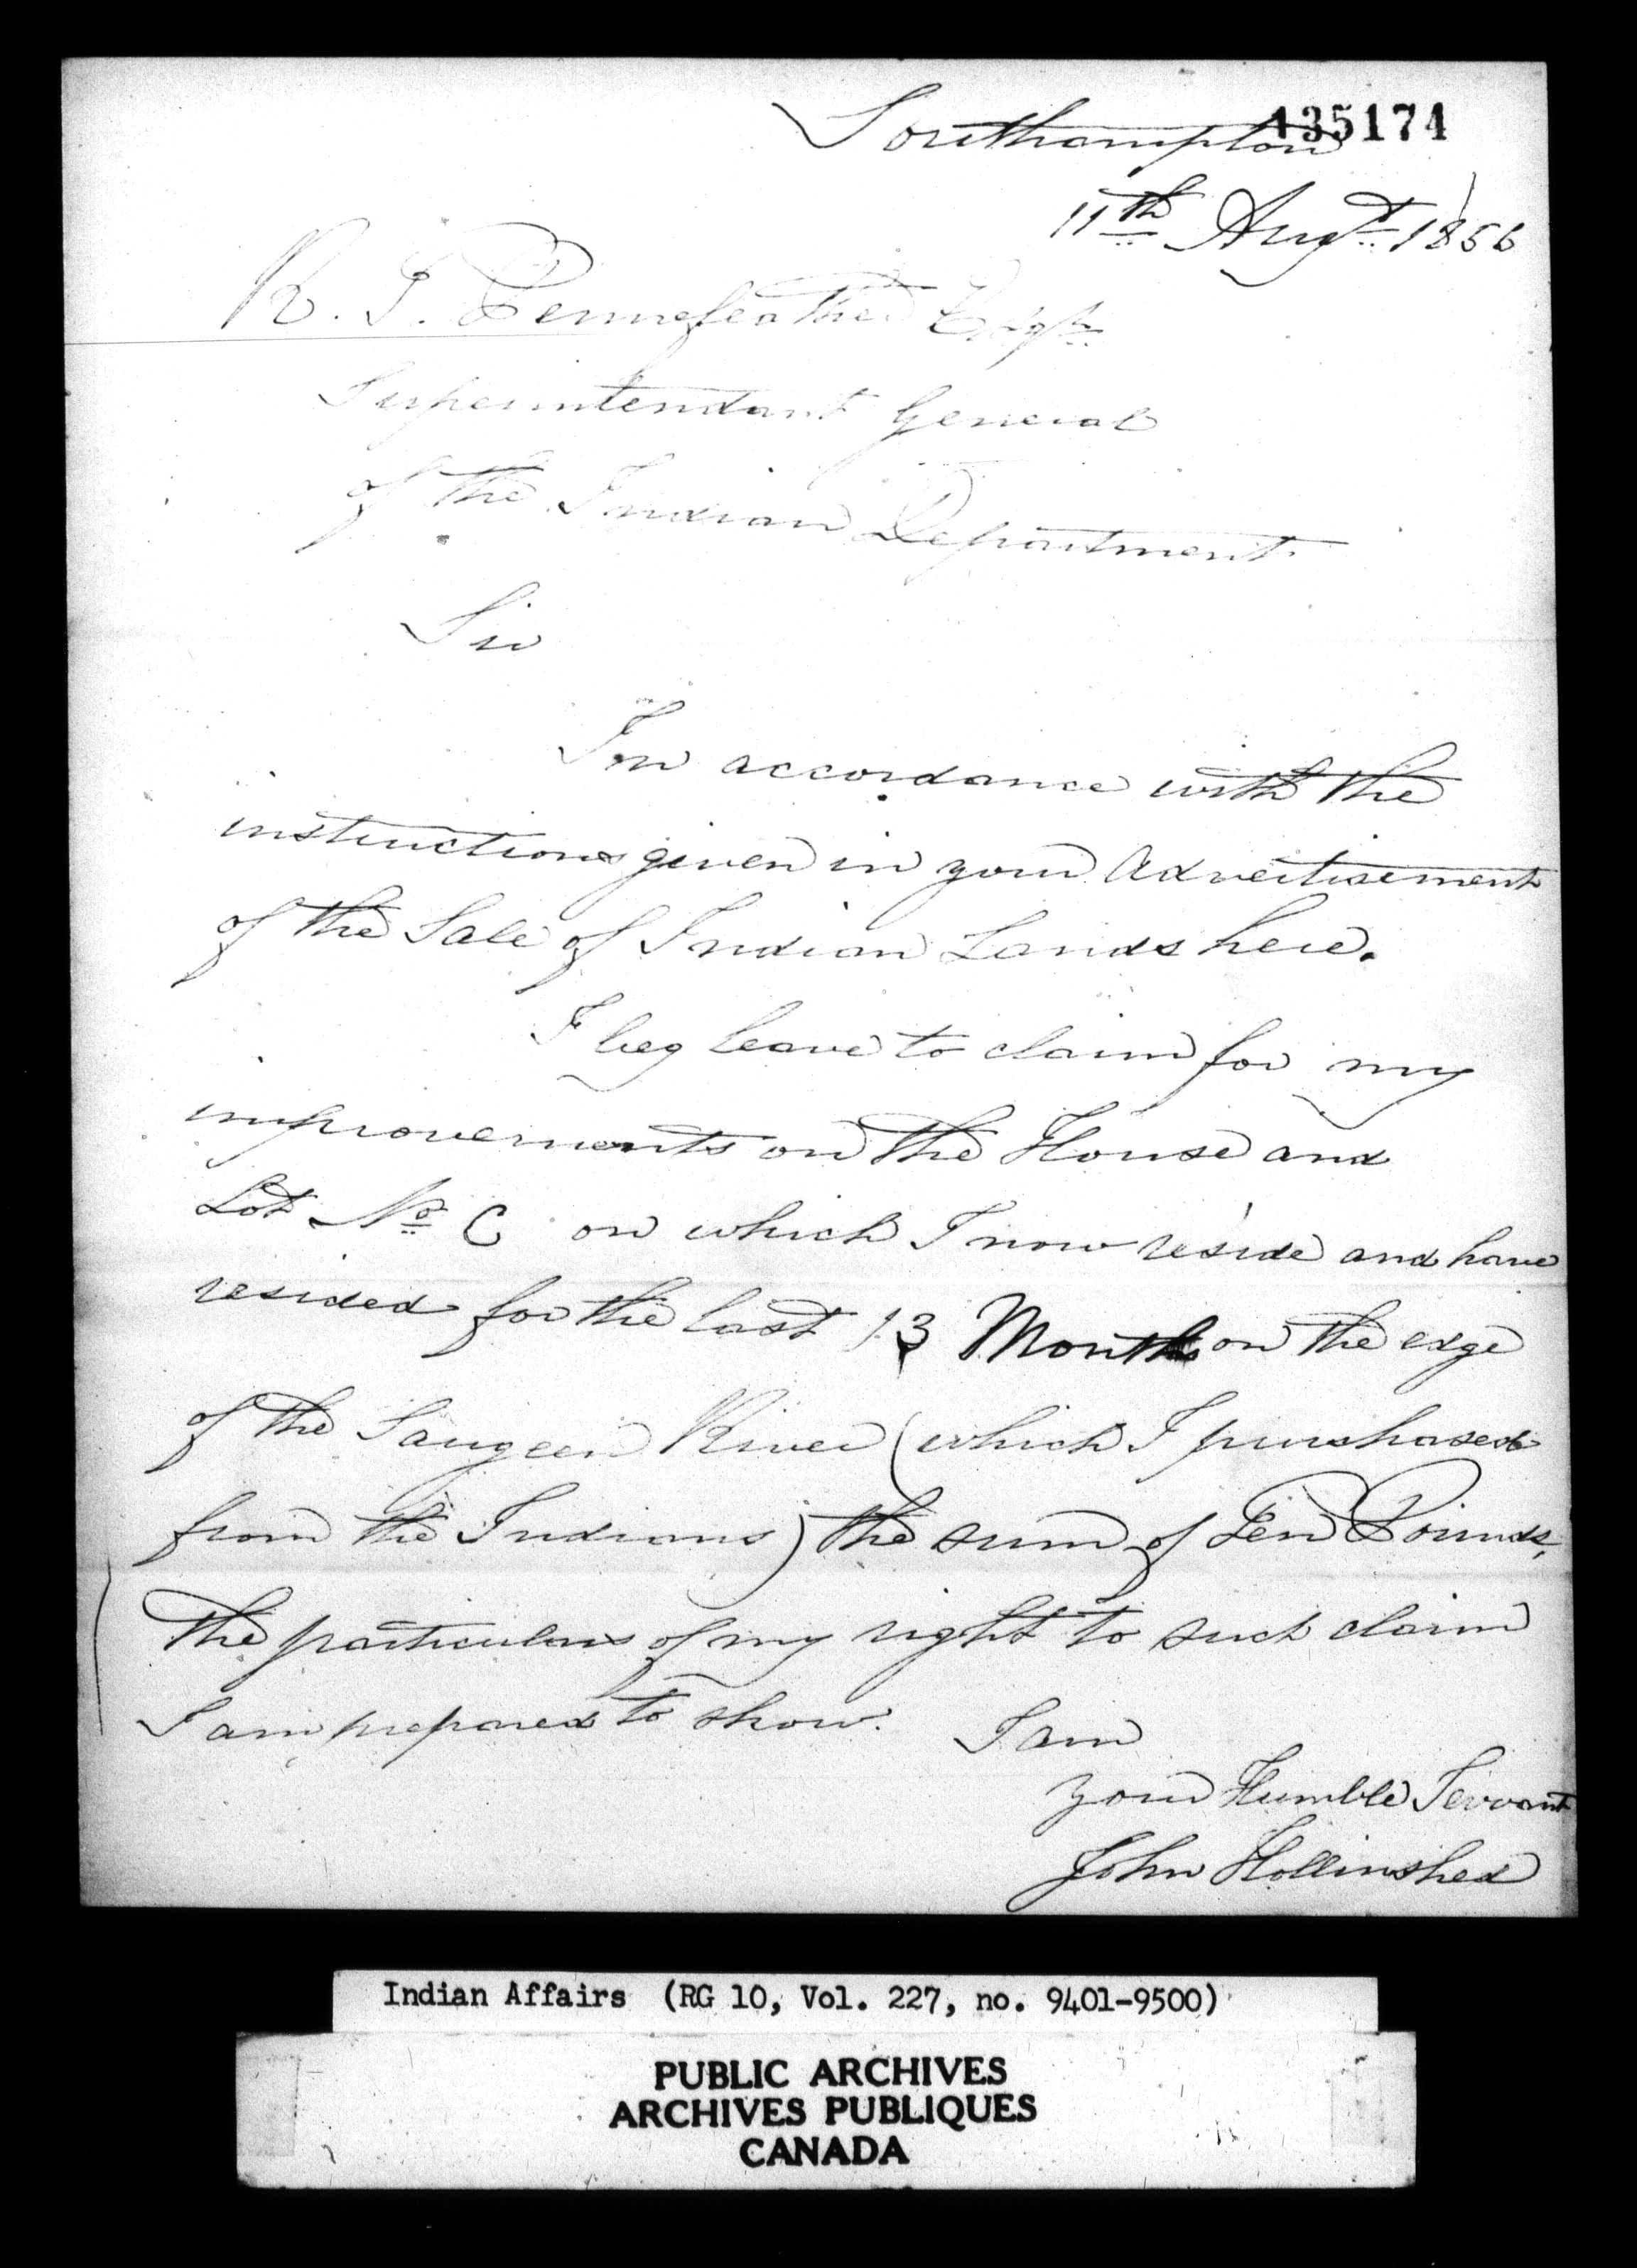 135174
Southampton
11th Augt. 1856
R. T. Pennefeather Esqr.
Superintendant General
of the Indian Department.
Sir
In accordance with the
instructions given in your Advertisement
of the Sale of Indian Lands here.
I beg leave to claim for my
improvements on the House and
Lot No. C on which I now reside and have
resided for the last 13 Months on the edge
of the Saugeen River (which I purchased
from the Indians) the sum of Ten Pounds,
The particulars of my right to such claim
I am prepared to show. I am
your Humble Servant
John Hollinshed
Indian Affairs (RG 10, Vol. 227, no. 9401-9500)
PUBLIC ARCHIVES
ARCHIVES PUBLIQUES
CANADA